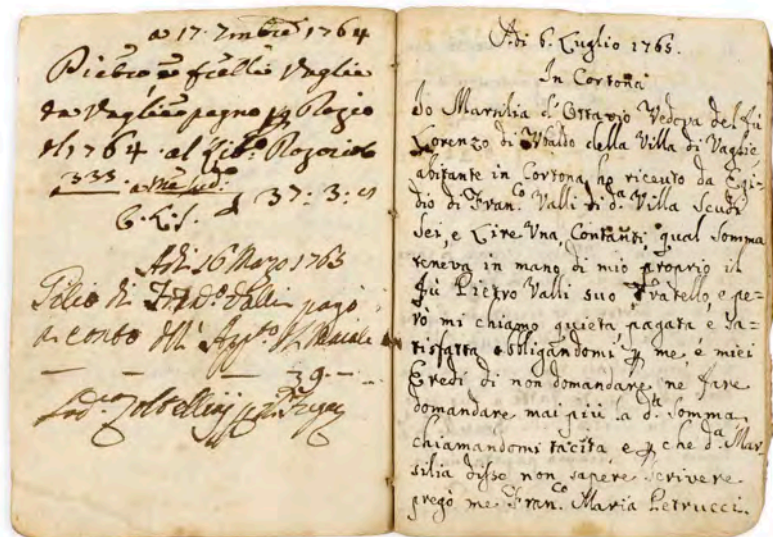 a 17. 7mbre 1764
Pietro e frelli Vaglie
da Vaglie pagno p Regio
el 1764. al Lib.o
333.
37: 3:
Adi 16 Marzo 1765
di Valli pagò
a conto
39
Adi 6. Luglio 1765.
In Cortona
Io Marsilia d'Ottavio Vedova del fù
Lorenzo di Ubaldo della Villa di Vaglie,
abitante in Cortona, ho riceuto da Egi-
dio di Fran.co Valli di d.a Villa Scudi
Sei, e Lire Una, Contanti, qual Somma
teneva in mano di mio proprio il
fù Pietro Valli suo Fratello, e pe-
rò mi chiamo quieta pagata e sa-
tisfatta obligandomi p me, e miei
Eredi di non domandare, ne fare
domandare mai più la d.ta Somma,
chiamandomi tacita e p che d.a Mar-
silia disso non sapere scrivere
pregò me Fran.co Maria Petrucci.